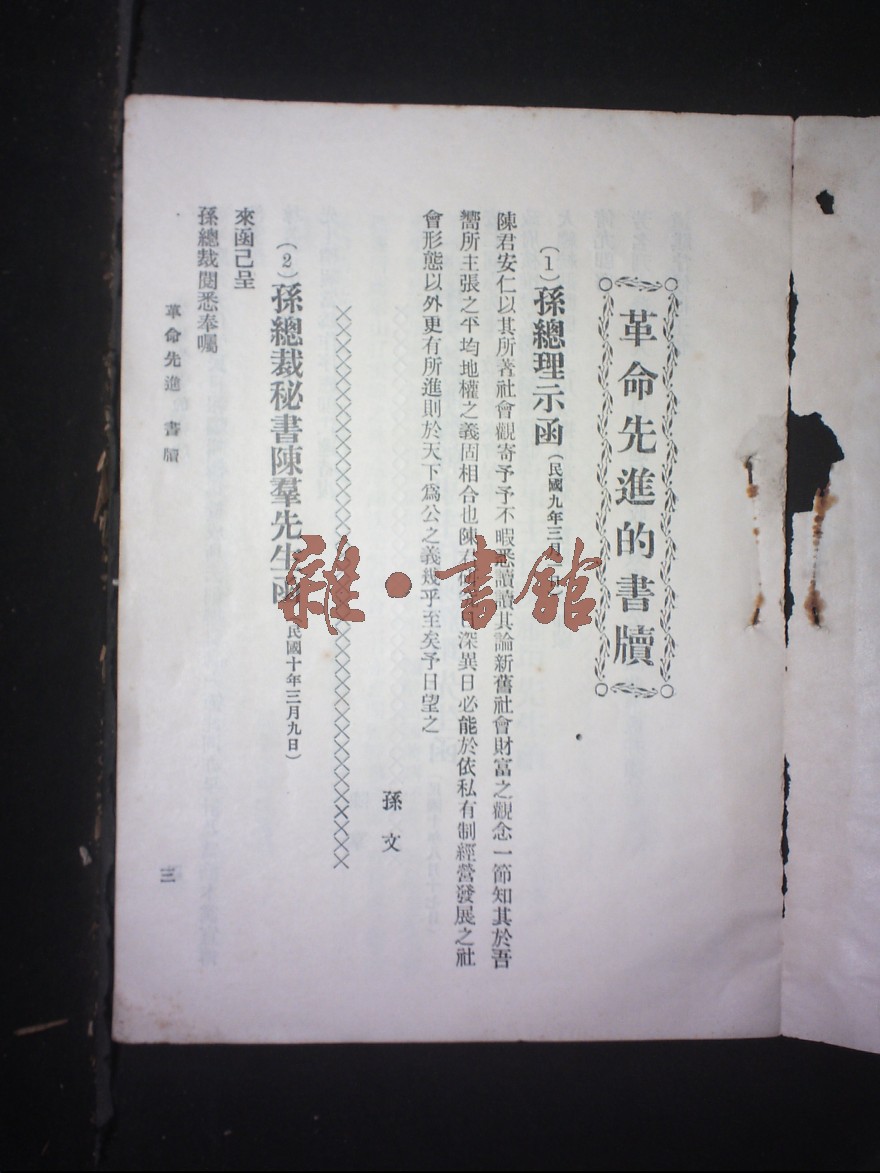 革命先進的書牘
（1）孫總理示函（民國九年三月
陳君安仁以其所著社會觀寄予予不暇悉讀讀其論新舊社會財富之觀念一節知其於吾
嚮所主張之平均地權之義固相合也陳 深異日必能於依私有制經營發展之社
會形態以外更有所進則於天下爲公之義幾乎至矣予日望之
孫文
（2）孫總裁秘書陳羣先生函（民國十年三月九日）
來函己呈
孫總裁閱悉奉囑
革命先進 書牘
三
雜·書館